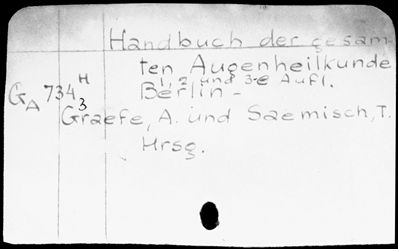 Handbuch der gesam-
ten Augenheilkunde
1, 2 und 3-e Aufl.
Berlin -
GA 734 H 3
Graefe, A. und Saemisch, T.
Hrsg.